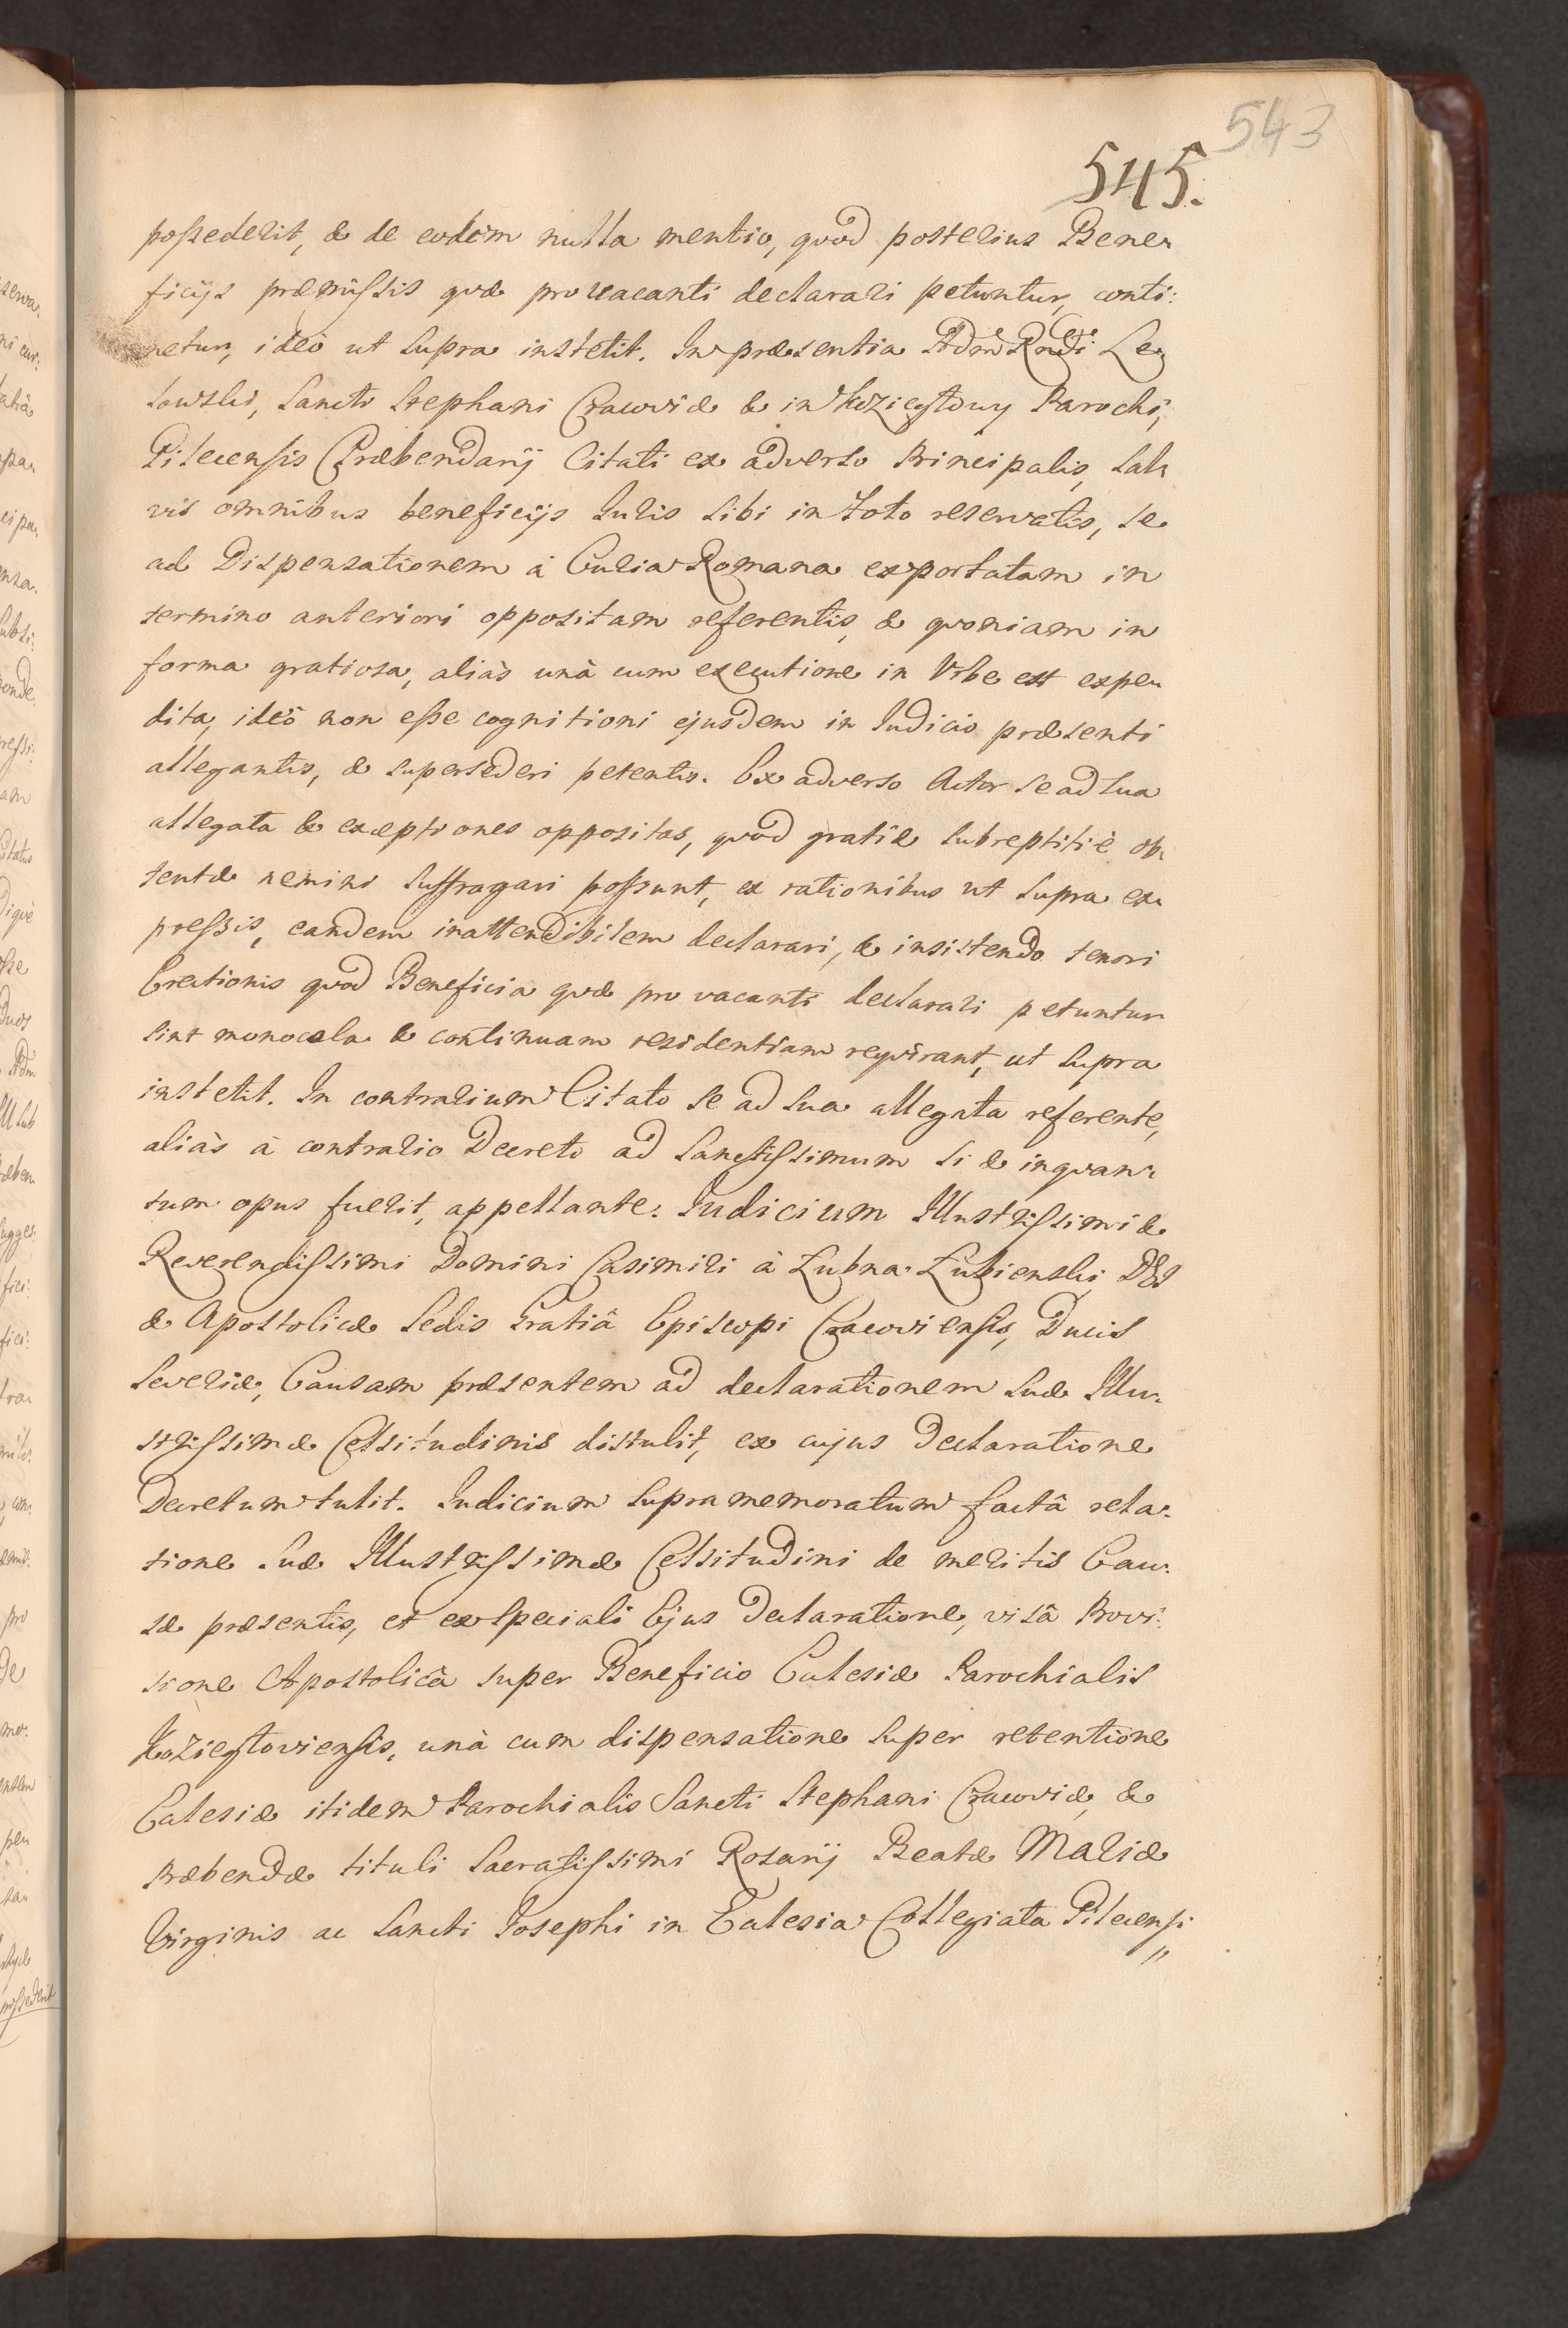 543
545.
possederit, & de eodem nulla mentio, quod posterius Bene-
ficijs præmissis quæ pro vacanti declarari petuntur, conti:
netur, ideò ut supra institit. In præsentia Adm Rndi Le-
towski, Sancti Stephani Cracoviæ & in Koziegłowy Parochi,
Pilecensis Præbendarij Citati ex adverso Principalis, sal-
vis omnibus beneficijs Iuris sibi in toto reservatis, se
ad Dispensationem à Curia Romana exportatam in
termino anteriori oppositam referentis, & quoniam in
forma gratiosa, aliàs unà cum executione in Urbe est expe-
dita, ideò non esse cognitioni ejusdem in Iudicio præsenti
allegantis, & supersederi petentis. Ex adverso Actor se ad sua
allegata & exceptiones oppositas, quod gratiæ subreptitiè ob-
tentæ nemini suffragari possunt, ex rationibus ut supra ex-
pressis, eandem inattendibilem declarari, & insistendo tenori
Erectionis quod Beneficia quæ pro vacanti declarari petuntur
sint monocula & continuam residentiam requirant, ut supra
institit. In contrarium Citato se ad sua allegata referente,
aliàs à contrario Decreto ad Sanctissimum si & inquan-
tum opus fuerit, appellante. Iudicium Illustrissimi &
Reverendissimi Domini Casimiri à Łubna Łubienski DEI
& Apostolicæ Sedis Gratiâ Episcopi Cracoviensis, Ducis
Severiæ, Causam præsentem ad declarationem Suæ Illu-
strissimæ Celsitudinis distulit, ex cujus Declaratione
Decretum tulit. Iudicium supramemoratum factâ rela-
tione Suæ Illustrissimæ Celsitudini de meritis Cau-
sæ præsentis, et ex speciali Ejus Declaratione, visâ Provi-
sione Apostolicâ super Beneficio Ecclesiæ Parochialis
Koziegłoviensis, unà cum dispensatione super retentione
Ecclesiæ itidem Parochialis Sancti Stephani Cracoviæ, &
Præbendæ tituli Sacratissimi Rosarij Beatæ Mariæ
Virginis ac Sancti Iosephi in Ecclesia Collegiata Pilecensi